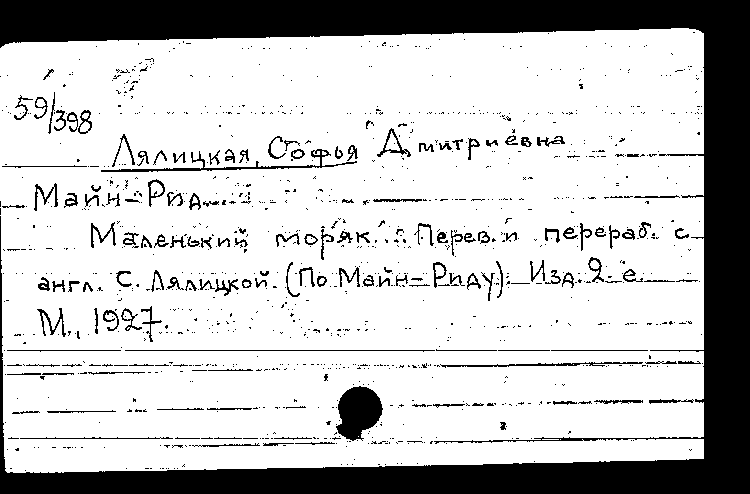 59/398
Лялицкая, Софья Дмитриевна
Майн-Рид.
Маленький моряк. Перев. и перераб. с
англ. С. Лялицкой. (По Майн-Риду). Изд. 2-е.
М., 1927.